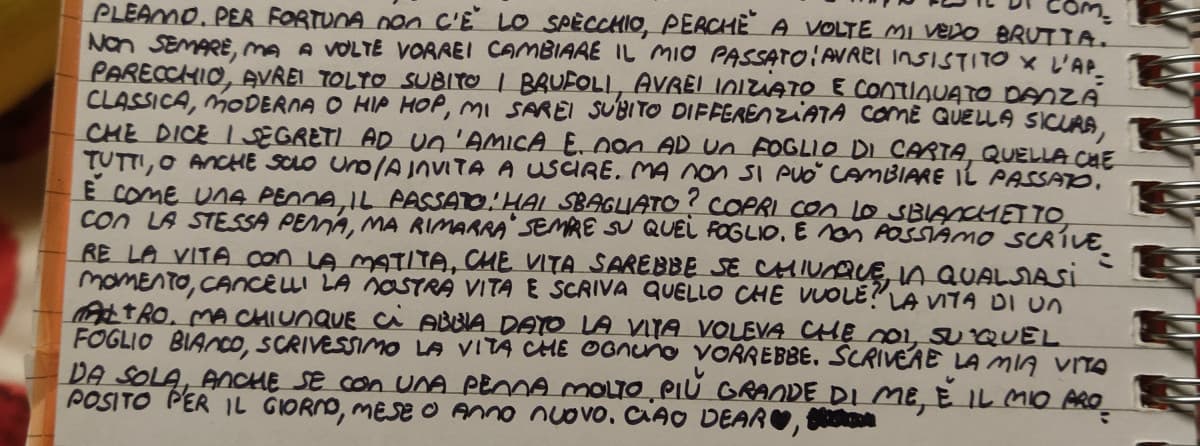 PLEAMO. PER FORTUNA NON C'È LO SPECCHIO, PERCHÈ A VOLTE MI VEDO BRUTTA.
NON SEMPRE, MA A VOLTE VORREI CAMBIARE IL MIO PASSATO! AVREI INSISTITO X L'AP=
PARECCHIO, AVREI TOLTO SUBITO I BRUFOLI, AVREI INIZIATO E CONTINUATO DANZA
CLASSICA, MODERNA O HIP HOP, MI SAREI SUBITO DIFFERENZIATA COME QUELLA SICURA,
CHE DICE I SEGRETI AD UN'AMICA E NON AD UN FOGLIO DI CARTA, QUELLA CHE
TUTTI, O ANCHE SOLO UNO/A INVITA A USCIRE. MA NON SI PUÒ CAMBIARE IL PASSATO.
È COME UNA PENNA, IL PASSATO! HAI SBAGLIATO? COPRI CON LO SBIANCHETTO,
CON LA STESSA PENNA, MA RIMARRÀ SEMPRE SU QUEL FOGLIO. E NON POSSIAMO SCRIVE=
RE LA VITA CON LA MATITA, CHE VITA SAREBBE SE CHIUNQUE, IN QUALSIASI
MOMENTO, CANCELLI LA NOSTRA VITA E SCRIVA QUELLO CHE VUOLE? LA VITA DI UN
ALTRO. MA CHIUNQUE CI ABBIA DATO LA VITA VOLEVA CHE NOI, SU QUEL
FOGLIO BIANCO, SCRIVESSIMO LA VITA CHE OGNUNO VORREBBE. SCRIVERE LA MIA VITA
DA SOLA, ANCHE SE CON UNA PENNA MOLTO PIÙ GRANDE DI ME, È IL MIO PRO=
POSITO PER IL GIORNO, MESE O ANNO NUOVO. CIAO DEAR ♥,